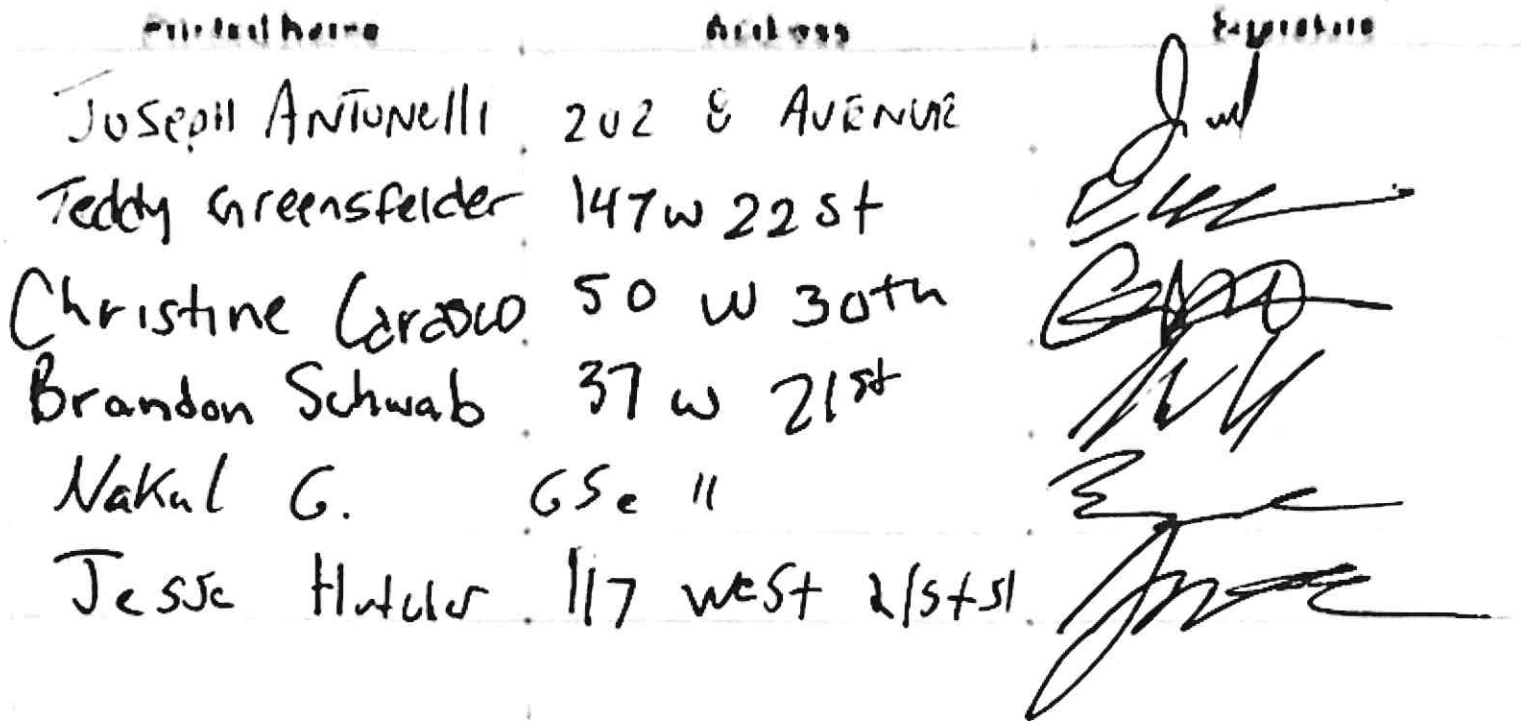 Printed Name Address Signature
Joseph ANTONELLI 202 8 AVENUE
Teddy Greensfelder 147 W 22 St
Christine 50 W 30th
Brandon Schwab 37 W 21st
Nakul G. 65 e 11
Jesse 117 West 21st st